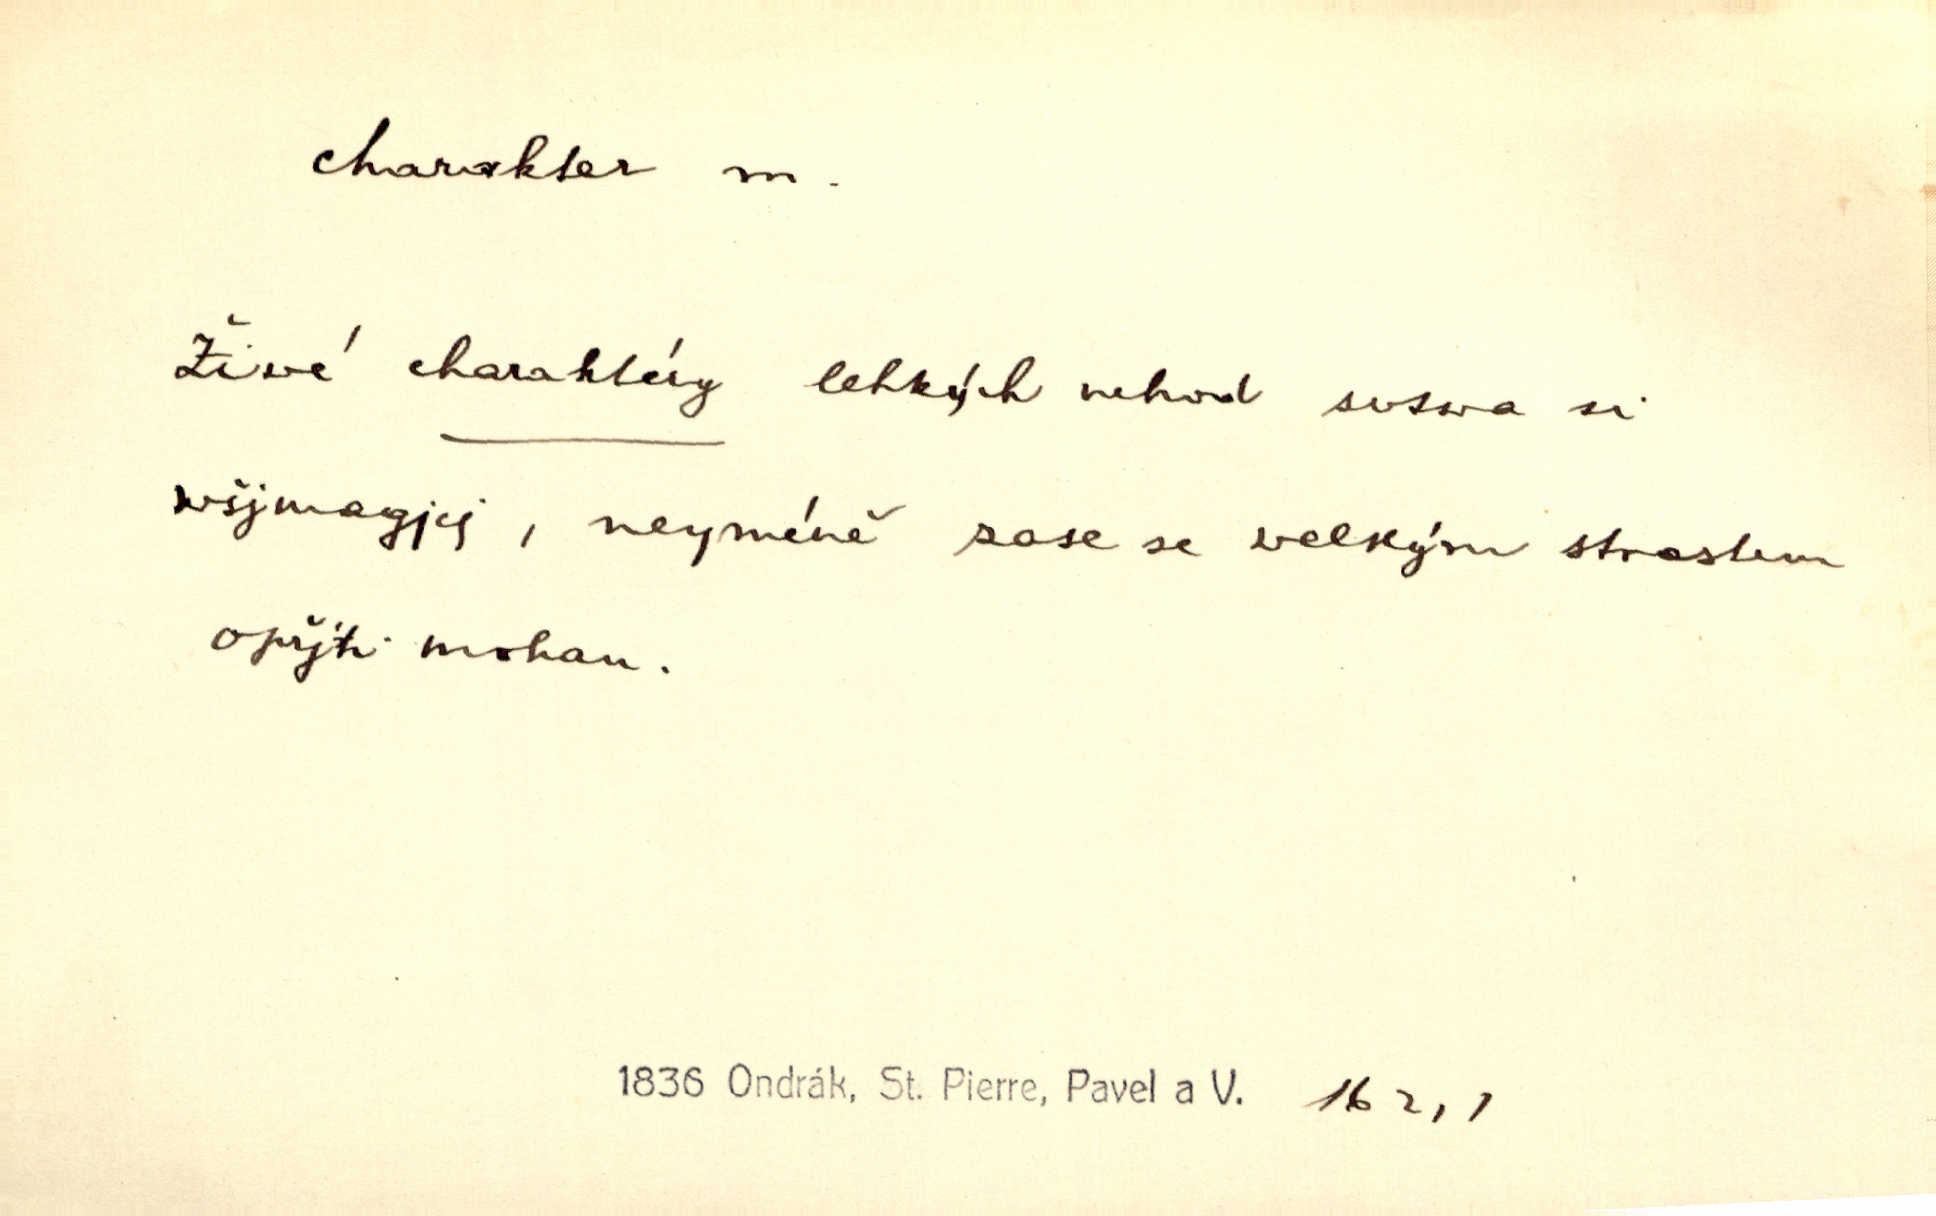 charakter m.
Živé charaktéry lehkých nehod sotwa si
wšjmagjcj, neyméně zase se welkým strastem
opřjti mohau.
1836 Ondrák, St. Pierre, Pavel a V. 162,1